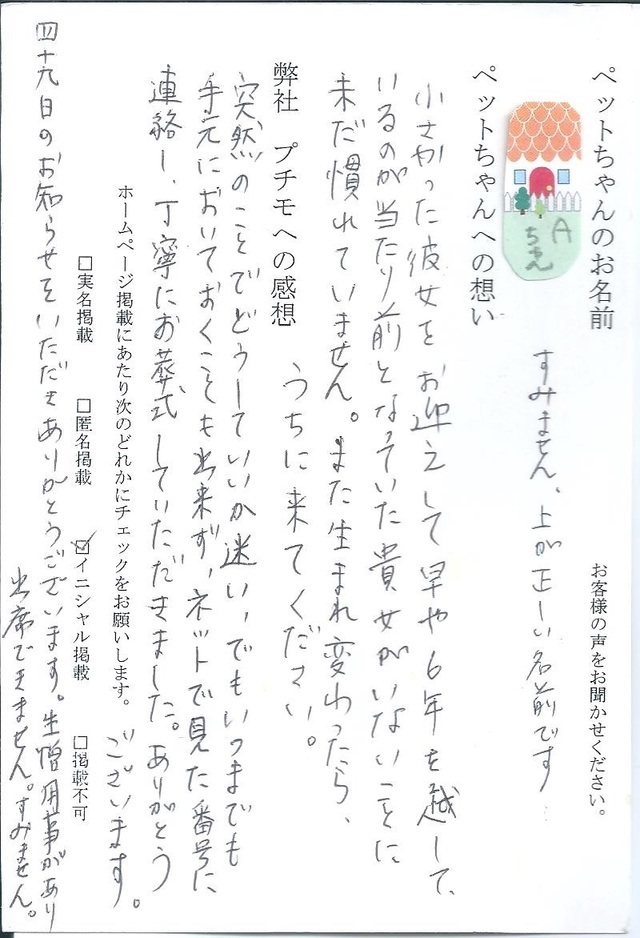 お客様の声をお聞かせください。
ペットちゃんのお名前
Aちゃん
すみません、上が正しい名前です
ペットちゃんへの想い
小さかった彼女をお迎えして早や6年を越して、
いるのが当たり前となっていた貴女がいないことに
未だ慣れていません。また生まれ変わったら、
うちに来てください。
弊社 プチモへの感想
突然のことでどうしていいか迷い、でもいつまでも
手元においておくことも出来ず、ネットで見た番号に
連絡し、丁寧にお葬式していただきました。ありがとう
ございます。
ホームページ掲載にあたり次のどれかにチェックをお願いします。
□実名掲載 □匿名掲載 ☑イニシャル掲載 □掲載不可
四十九日のお知らせをいただきありがとうございます。生憎用事があり
出席できません。すみません。